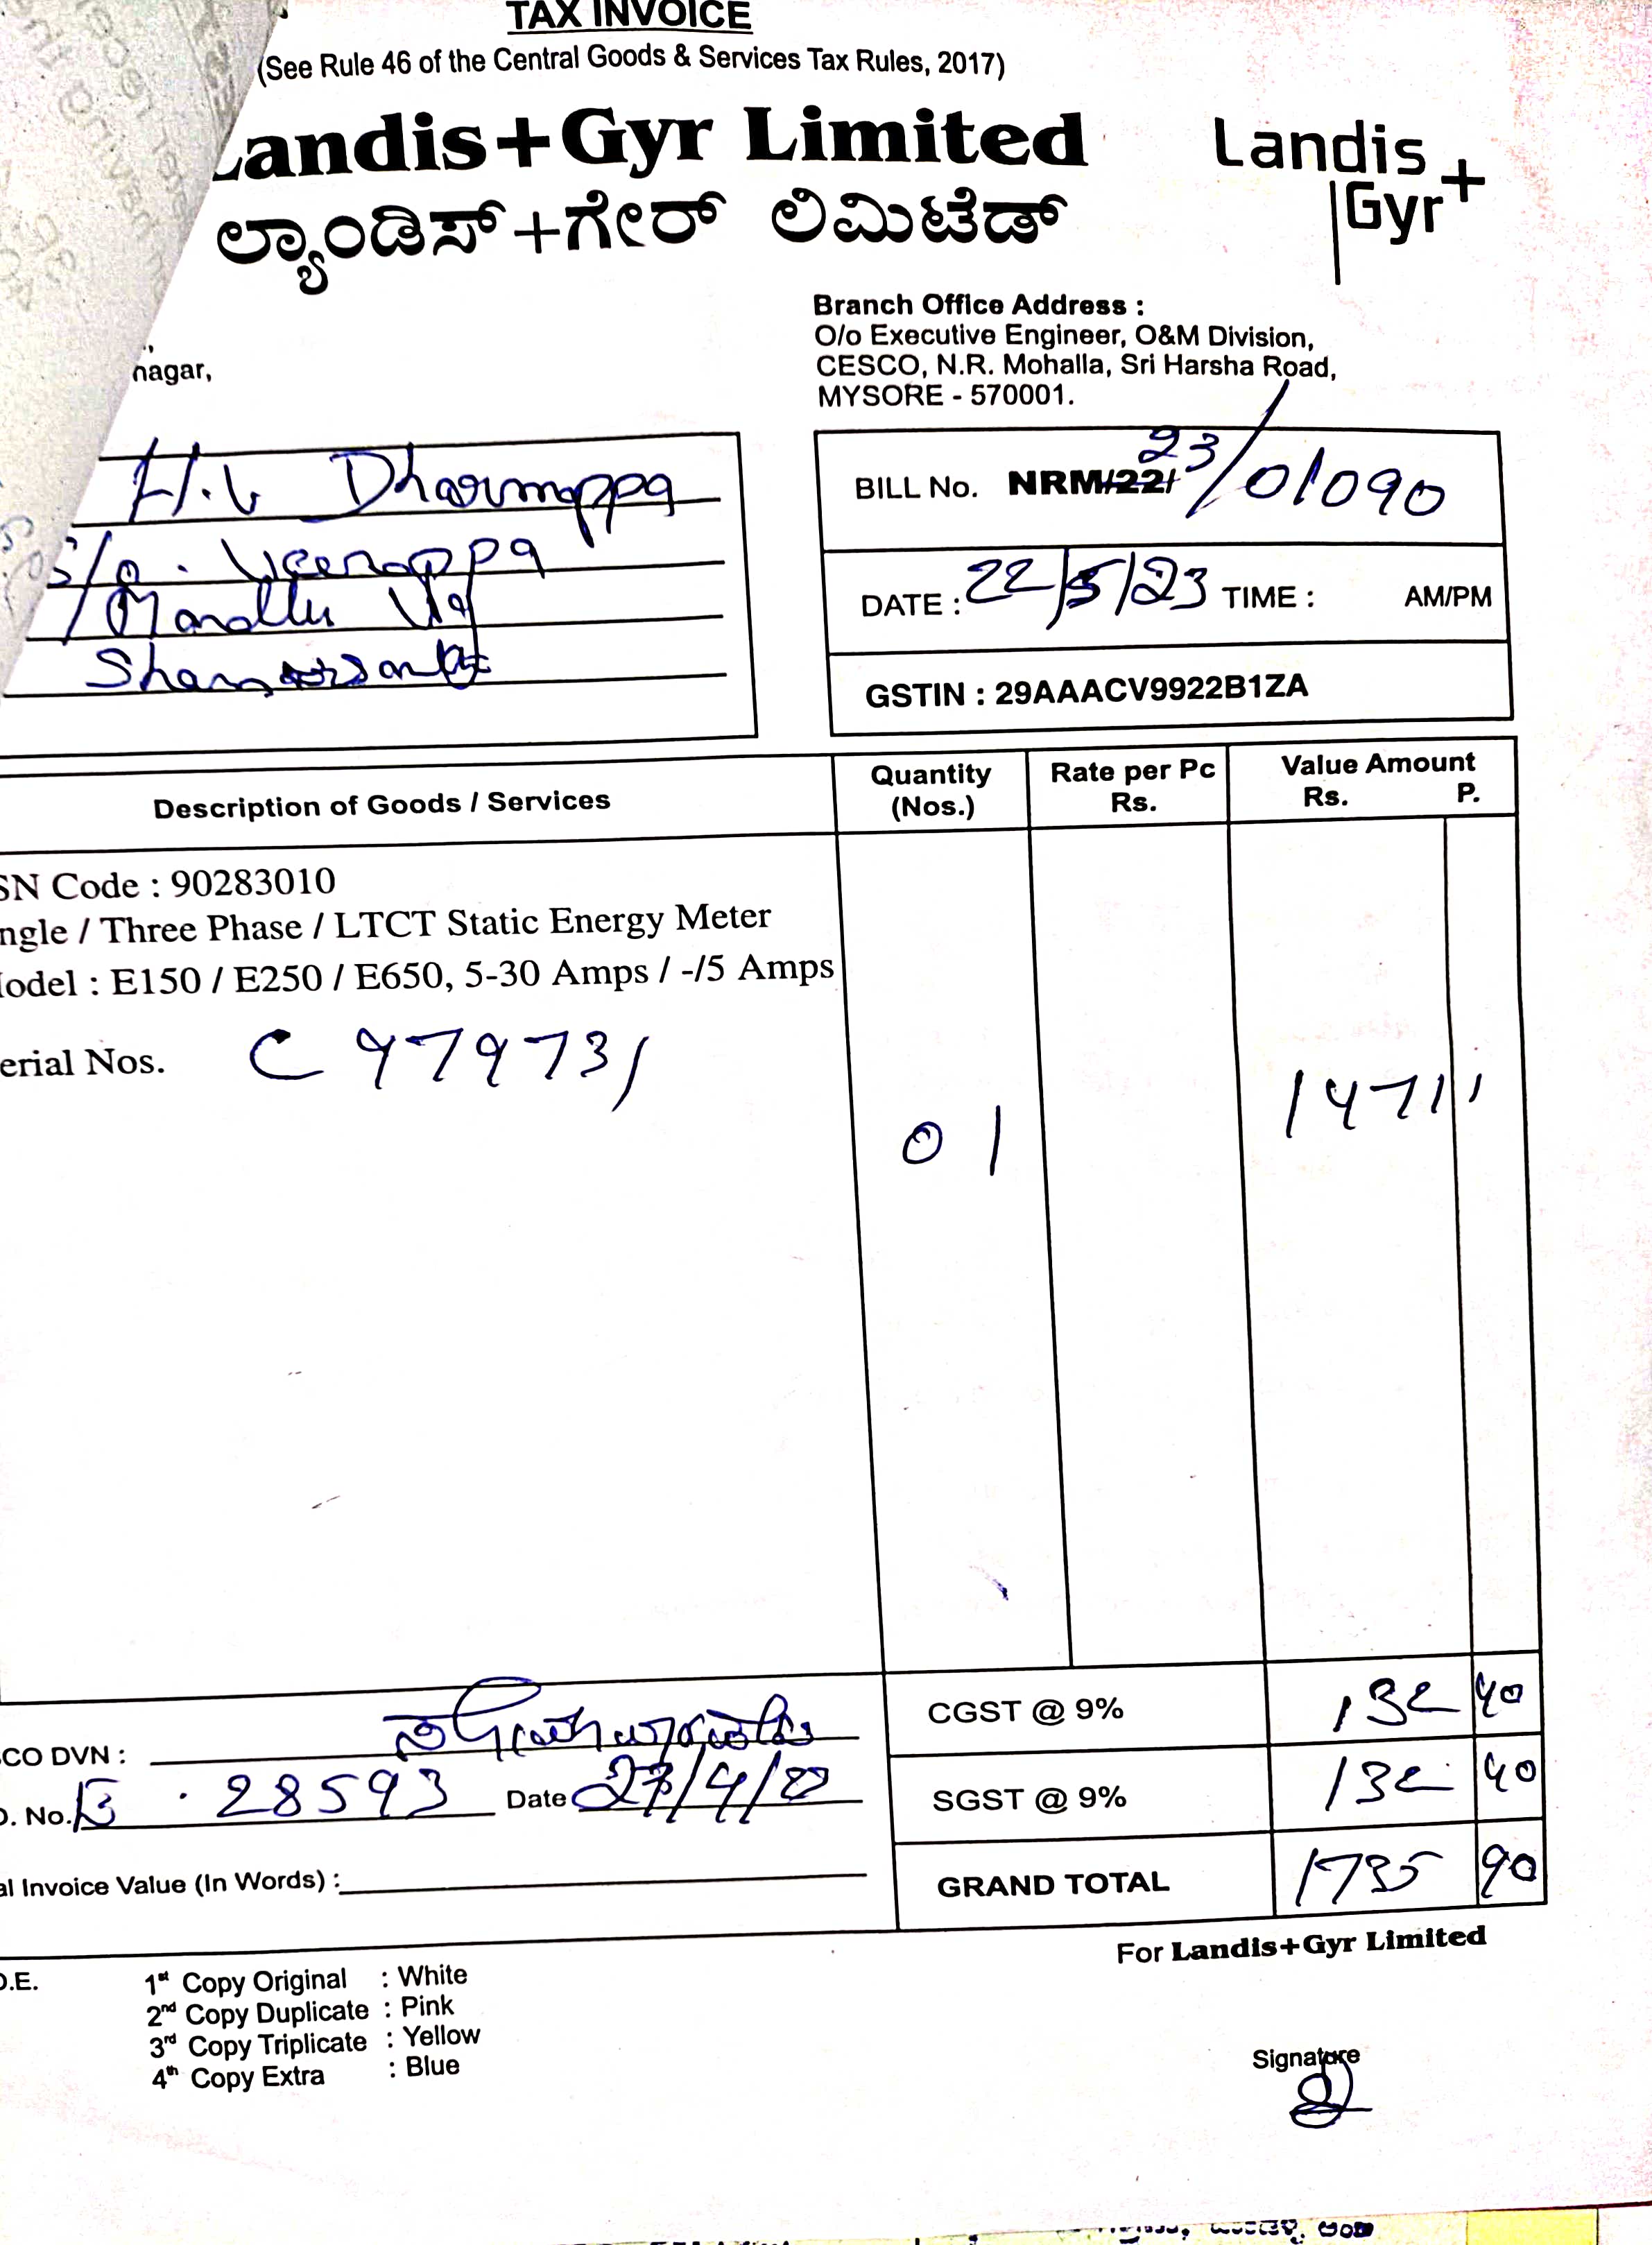 TAX INVOICE
(See Rule 46 of the Central Goods & Services Tax Rules, 2017)
Landis+Gyr Limited
ಲ್ಯಾಂಡಿಸ್+ಗೇರ್ ಲಿಮಿಟೆಡ್
Landis
Gyr+
nagar,
Branch Office Address :
O/o Executive Engineer, O&M Division,
CESCO, N.R. Mohalla, Sri Harsha Road,
MYSORE - 570001.
H.V Dharmappa
S/o. Veerappa
Mandlu
BILL No. NRM/22/ 23/01090
DATE : 22/5/23 TIME : AM/PM
GSTIN : 29AAACV9922B1ZA
Description of Goods / Services
Quantity (Nos.)
Rate per Pc Rs.
Value Amount Rs. P.
SN Code : 90283010
ngle / Three Phase / LTCT Static Energy Meter
odel : E150 / E250 / E650, 5-30 Amps / -/5 Amps
erial Nos. C 979731
01
1471
CGST @ 9% 132 40
SGST @ 9% 132 40
GRAND TOTAL 1735 90
CO DVN :
No. 28593 Date 27/4/22
al Invoice Value (In Words) :
For Landis+Gyr Limited
O.E.
1st Copy Original : White
2nd Copy Duplicate : Pink
3rd Copy Triplicate : Yellow
4th Copy Extra : Blue
Signature